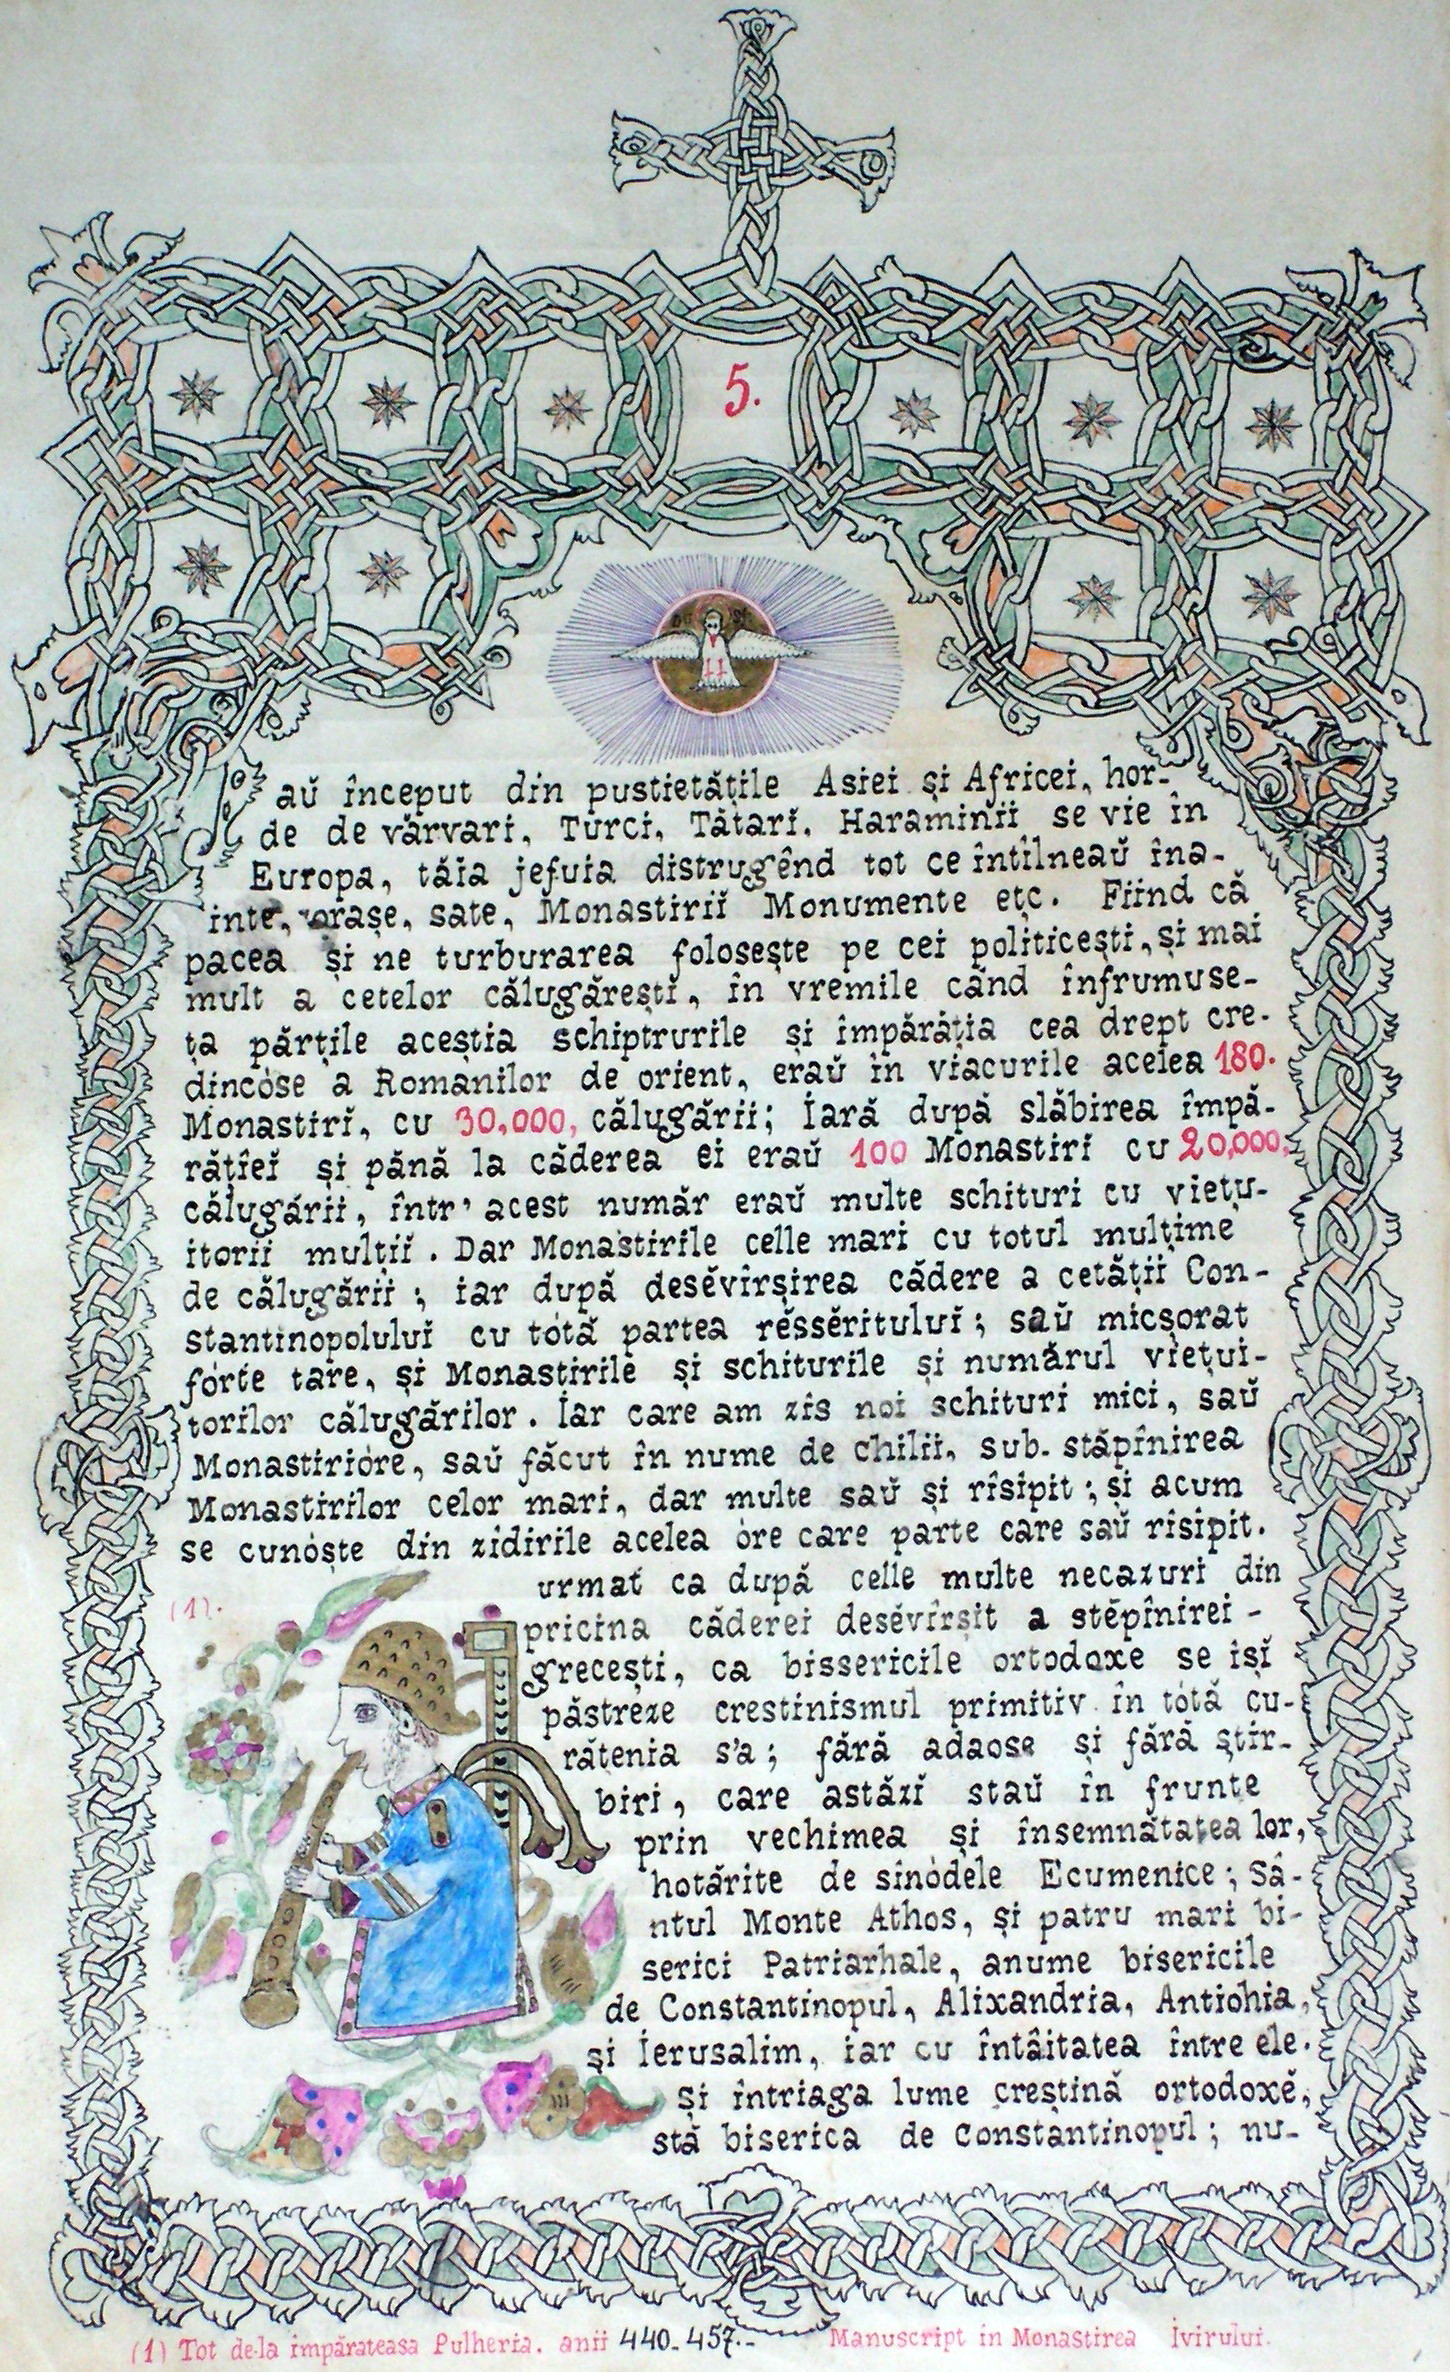 5.
aŭ început din pustietățile Asiei și Africei, hor-
de de vărvari, Turci, Tătarĭ, Haraminii se vie în
Europa, tăĭa jefuia distrugênd tot ce întîlneaŭ îna-
inte, orașe, sate, Monastiriĭ Monumente etc. Fiind că
pacea și ne turburarea folosește pe cei politicești, și mai
mult a cetelor călugărești, în vremile când înfrumuse-
ța părțile aceștia schiptrurile și împărăția cea drept cre-
dincóse a Romanilor de orient, eraŭ în viacurile acelea 180.
Monastirĭ, cu 30,000, călugării; Iară după slăbirea împă-
rățieĭ și până la căderea ei eraŭ 100 Monastiri cu 20,000,
călugării, într' acest număr eraŭ multe schituri cu viețu-
itorii mulțiĭ. Dar Monastirile celle mari cu totul mulțime
de călugării; iar după desĕvîrșirea cădere a cetății Con-
stantinopoluluĭ cu tótă partea rĕssĕrituluĭ; saŭ micșorat
fórte tare, și Monastirile și schiturile și numărul viețui-
torilor călugărilor. Iar care am zis noi schituri mici, saŭ
Monastirióre, saŭ făcut în nume de chilii, sub. stăpînirea
Monastirilor celor mari, dar multe saŭ și rîsipit; și acum
se cunóște din zidirile acelea óre care parte care saŭ rîsipit.
(1).
urmat ca după celle multe necazuri din
pricina căderei desĕvîrsit a stĕpînirei -
grecești, ca bissericile ortodoxe se ișĭ
păstreze crestinismul primitiv în tótă cu-
rătenia s'a; fără adaose și fără știr-
biri, care astăzĭ staŭ în frunte
prin vechimea și însemnătatea lor,
hotărite de sinódele Ecumenice; Sâ-
ntul Monte Athos, și patru mari bi-
serici Patriarhale, anume bisericile
de Constantinopul, Alixandria, Antiohia,
și Ierusalim, iar cu întâitatea între ele.
Și întriaga lume creștină ortodoxĕ,
stă biserica de Constantinopul; nu-
(1) Tot de-la împărateasa Pulheria. anii 440-457.- Manuscript in Monastirea Ivirului.